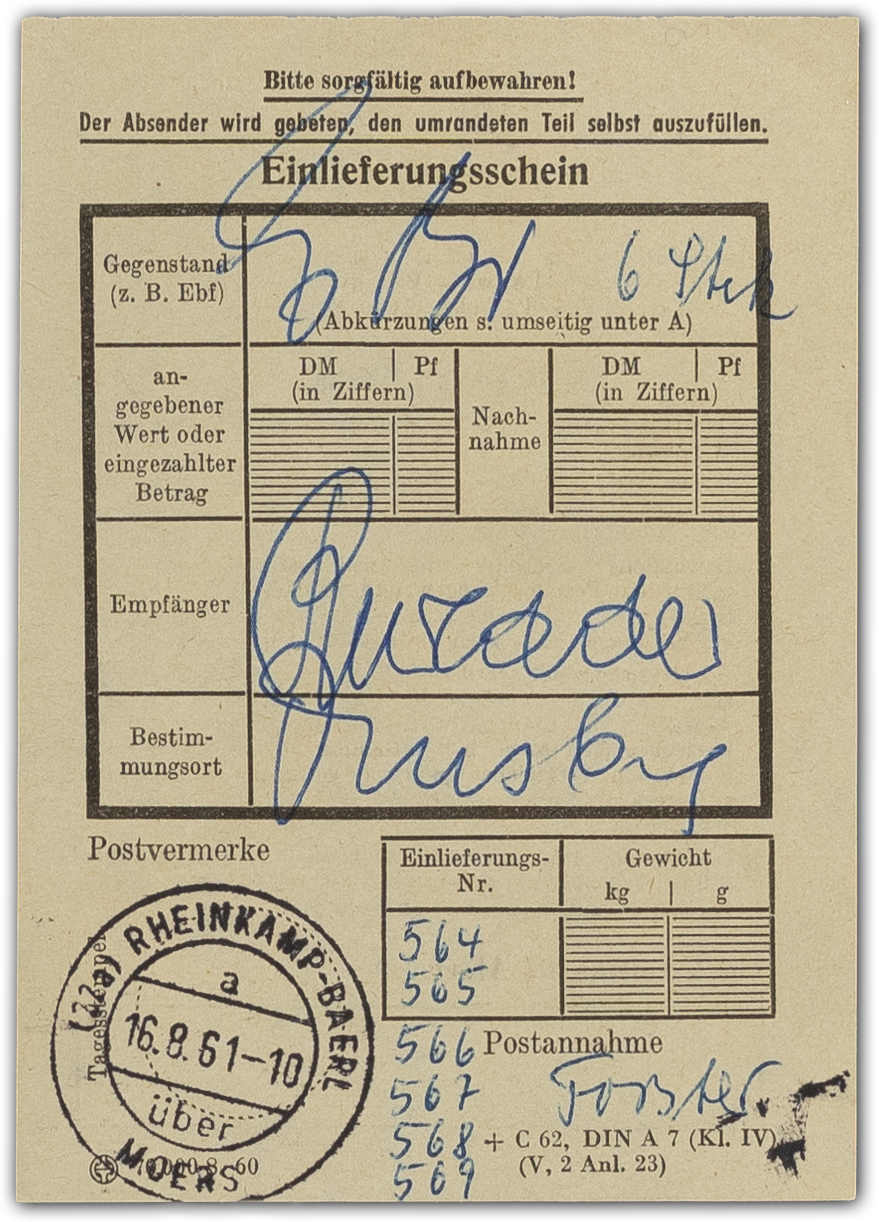 Bitte sorgfältig aufbewahren!
Der Absender wird gebeten, den umrandeten Teil selbst auszufüllen.
Einlieferungsschein
Gegenstand
(z. B. Ebf)
6 Stck
(Abkürzungen s. umseitig unter A)
an-
gegebener
Wert oder
eingezahlter
Betrag
DM | Pf
(in Ziffern)
Nach-
nahme
DM | Pf
(in Ziffern)
Empfänger
Bestim-
mungsort
Postvermerke
Einlieferungs-
Nr.
Gewicht
kg | g
564
565
566
567
568
569
Postannahme
+ C 62, DIN A 7 (Kl. IV)
(V, 2 Anl. 23)
Tagesstempel
(22a) RHEINKAMP-BAERL
a
16.8.61-10
über
MOERS